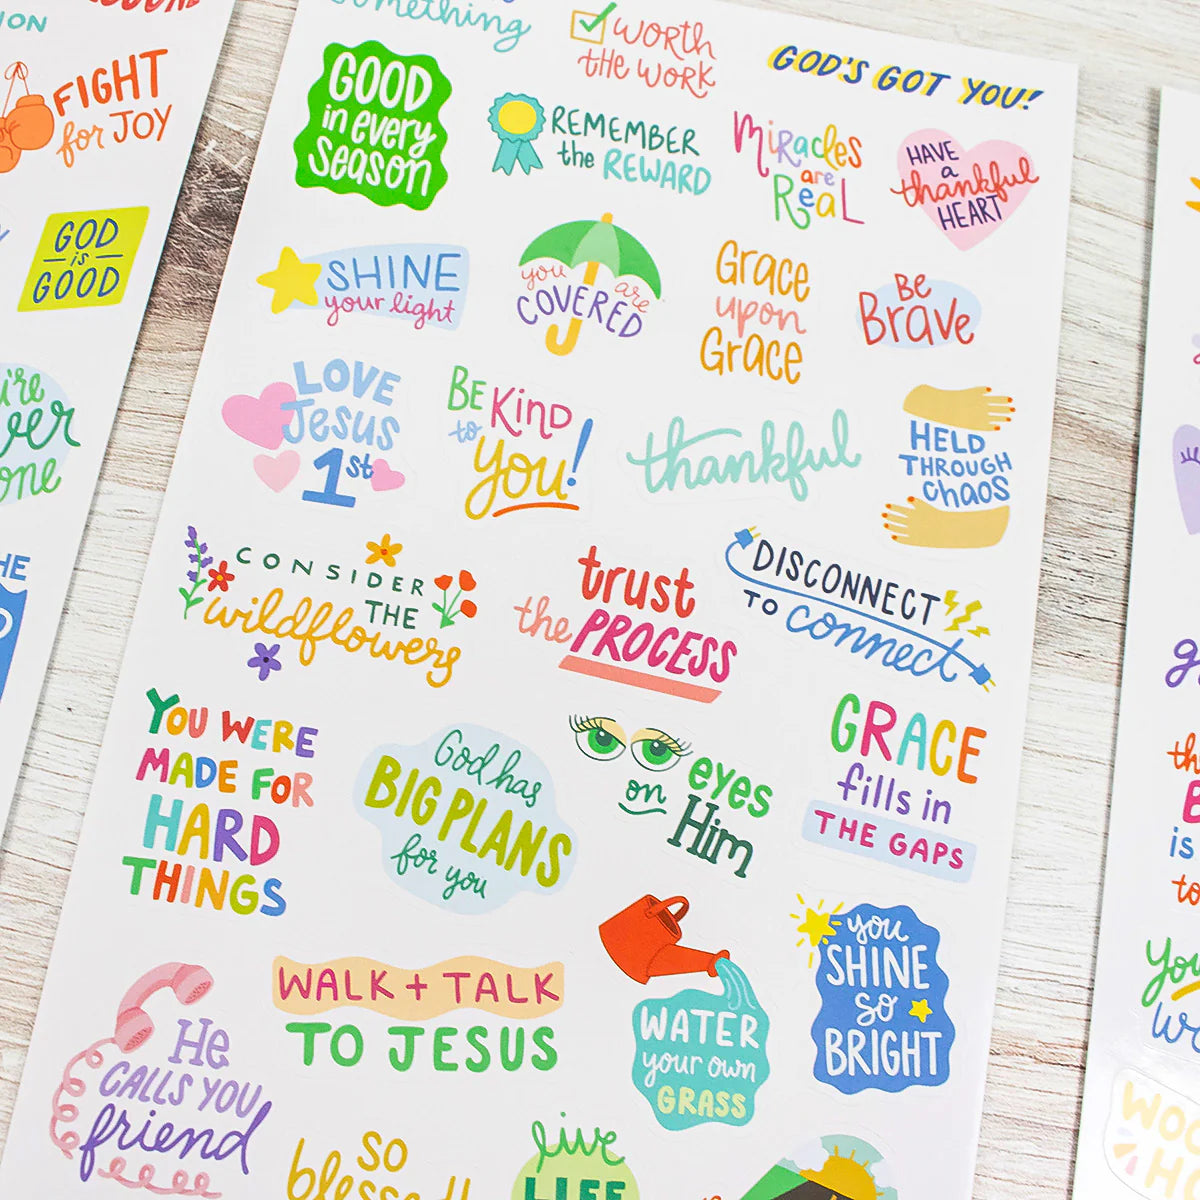 something
WORTH
the WORK
GOD'S GOT YOU!
GOOD
in every
SEASON
REMEMBER
the REWARD
MiRacles
are
ReaL
HAVE
a
thankful
HEART
SHINE
your light
you are
COVERED
Grace
upon
Grace
Be
BRave
LOVE
Jesus
1st
Be Kind
to
you!
thankful
HELD
THROUGH
CHaOS
CONSIDER
THE
wildflowers
trust
the PROCESS
DISCONNECT
TO connect
YOU WERE
MADE FOR
HARD
THINGS
God has
BIG PLANS
for you
eyes
on Him
GRACE
fills in
THE GAPS
WALK + TALK
TO JESUS
WATER
your own
GRASS
you
SHINE
so
BRIGHT
He
CALLS YOU
friend
SO
blessed
live
LIFE
FIGHT
for JOY
GOD
is
GOOD